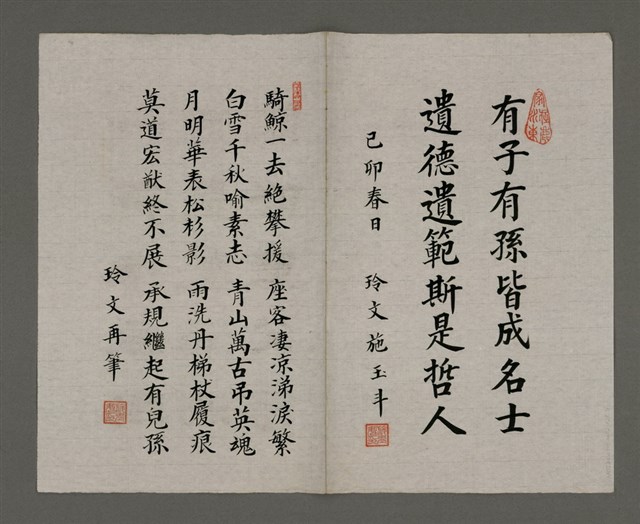 有子有孫皆成名士
遺德遺範斯是哲人
己卯春日 玲文施玉斗
騎鯨一去絕攀援 座客凄凉涕淚繁
白雪千秋喻素志 青山萬古吊英魂
月明華表松杉影 雨洗丹梯杖履痕
莫道宏猷終不展 承規繼起有兒孫
玲文再筆